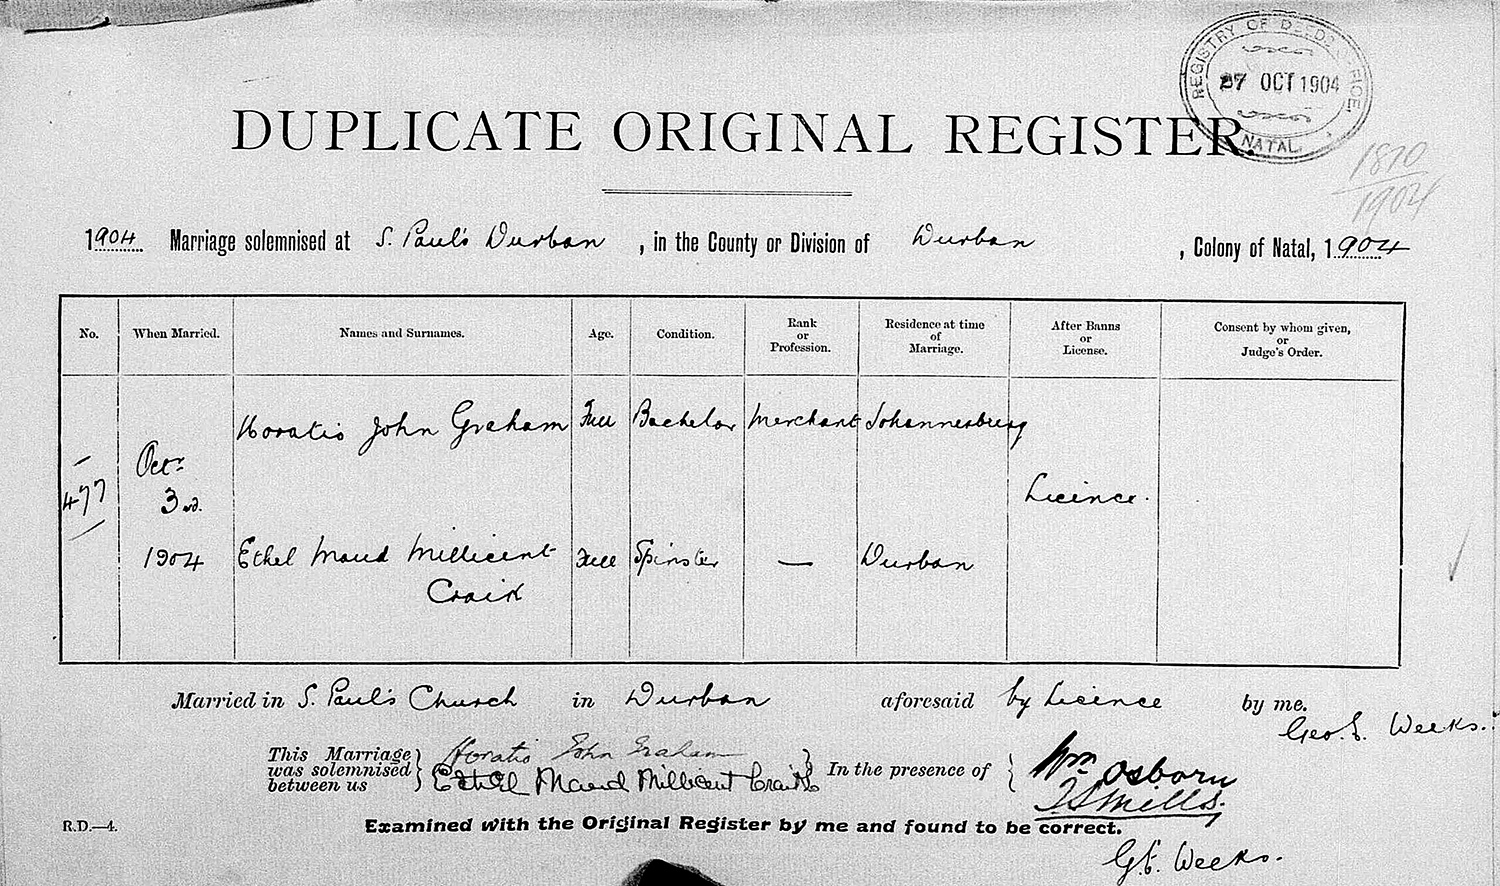 REGISTRY OF DEEDS OFFICE,
27 OCT 1904
NATAL.
DUPLICATE ORIGINAL REGISTER.
1810
1904
1904 Marriage solemnised at S. Paul's Durban, in the County or Division of Durban, Colony of Natal, 1904
No. When Married. Names and Surnames. Age. Condition. Rank or Profession. Residence at time of Marriage. After Banns or License. Consent by whom given, or Judge's Order.
Horatio John Graham Full Bachelor Merchant Johannesburg
Octr
477 3rd. Licence.
1904 Ethel Maud Millicent Full Spinster — Durban
Craik
Married in S. Paul's Church in Durban aforesaid by Licence by me.
Geo. E. Weeks.
This Marriage was solemnised between us
Horatio John Graham
Ethel Maud Millicent Craik
In the presence of
Wm Osborn
Mills.
R.D.—4.
Examined with the Original Register by me and found to be correct.
G.E. Weeks.